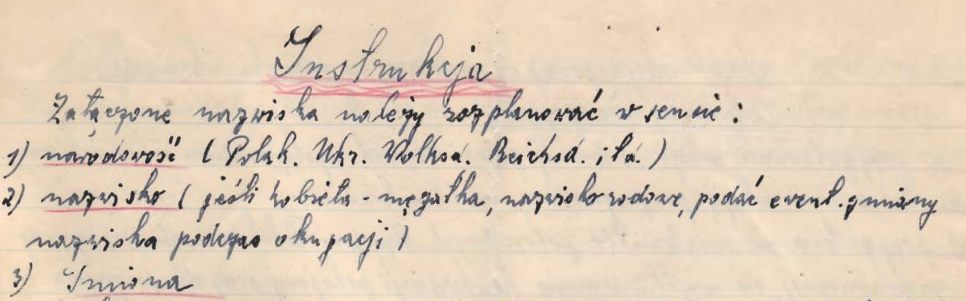 Instrukcja
Załączone nazwiska należy rozplanować w sensie:
1) narodowość (Polak. Ukr. Volksd. Reichsd. itd.)
2) nazwisko (jeśli kobieta - mężatka, nazwisko rodowe, podać ewent. zmiany
nazwiska podczas okupacji)
3) Imiona